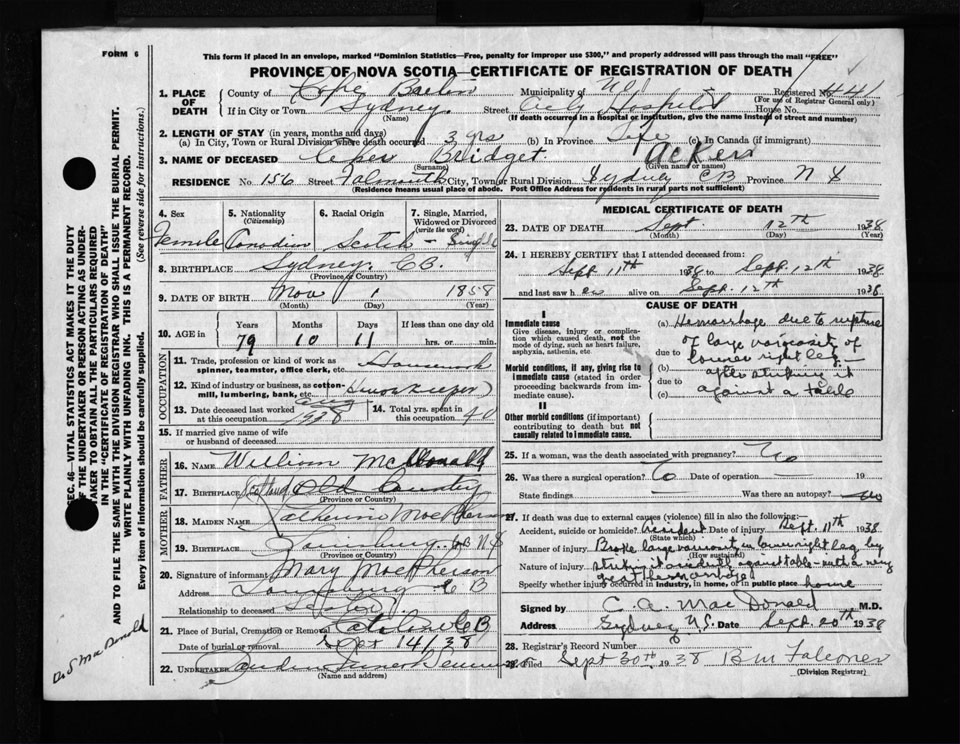 FORM 6
This form if placed in an envelope, marked "Dominion Statistics—Free, penalty for improper use $300," and properly addressed will pass through the mail "FREE"
PROVINCE OF NOVA SCOTIA—CERTIFICATE OF REGISTRATION OF DEATH
1. PLACE OF DEATH
County of Cape Breton Municipality of Registered No. 441
(For use of Registrar General only)
If in City or Town Sydney Street City Hospital House No.
(Name) (If death occurred in a hospital or institution, give the name instead of street and number)
2. LENGTH OF STAY (in years, months and days)
(a) In City, Town or Rural Division where death occurred 3 yrs (b) In Province Life (c) In Canada (if immigrant)
3. NAME OF DECEASED Bridget Acker
(Surname) (Given name or names)
RESIDENCE No 156 Street Falmouth City, Town or Rural Division Sydney CB Province N S
(Residence means usual place of abode. Post Office Address for residents in rural parts not sufficient)
4. Sex Female
5. Nationality (Citizenship) Canadian
6. Racial Origin Scotch
7. Single, Married, Widowed or Divorced (write the word) Single
8. BIRTHPLACE Sydney, C.B.
(Province or Country)
9. DATE OF BIRTH Nov 1 1858
(Month) (Day) (Year)
10. AGE in Years 79 Months 10 Days 11 If less than one day hrs. or min.
OCCUPATION
11. Trade, profession or kind of work as spinner, teamster, office clerk, etc. Housework
12. Kind of industry or business, as cotton-mill, lumbering, bank, etc. Housekeeper
13. Date deceased last worked at this occupation Aug 1938
14. Total yrs. spent in this occupation 40
15. If married give name of wife or husband of deceased
FATHER
16. NAME William McDonald
17. BIRTHPLACE Scotland Old Country
(Province or Country)
MOTHER
18. MAIDEN NAME Catherine MacPherson
19. BIRTHPLACE Louisburg CB NS
(Province or Country)
20. Signature of informant Mary MacPherson
Address Louisburg C B
Relationship to deceased
21. Place of Burial, Cremation or Removal Catalone CB
Date of burial or removal Sept 14/38
22. UNDERTAKER
(Name and address)
MEDICAL CERTIFICATE OF DEATH
23. DATE OF DEATH Sept. 12th 1938
(Month) (Day) (Year)
24. I HEREBY CERTIFY that I attended deceased from:
Sept 11th 1938 to Sept. 12th 1938
and last saw her alive on Sept. 12th 1938
CAUSE OF DEATH
I
Immediate cause
Give disease, injury or complication which caused death, not the mode of dying, such as heart failure, asphyxia, asthenia, etc.
Morbid conditions, if any, giving rise to immediate cause (stated in order proceeding backwards from immediate cause).
II
Other morbid conditions (if important) contributing to death but not causally related to immediate cause.
(a) Hemorrhage due to rupture
of large varicosity of
due to lower right leg
(b) after striking it
due to
(c) against a table
25. If a woman, was the death associated with pregnancy? No
26. Was there a surgical operation? No Date of operation 19
State findings Was there an autopsy? No
27. If death was due to external causes (violence) fill in also the following:
Accident, suicide or homicide? Accident Date of injury Sept. 11th 1938
(State which)
Manner of injury Broke large varicosity in lower right leg by
(How sustained)
Nature of injury striking it against table with a very
great hemorrhage
Specify whether injury occurred in industry, in home, or in public place home
Signed by C. A. MacDonald M.D.
Address Sydney N.S. Date Sept. 20th 1938
28. Registrar's Record Number
29. Filed Sept 30th 1938 B M Falconer
(Division Registrar)
SEC. 46—VITAL STATISTICS ACT MAKES IT THE DUTY
OF THE UNDERTAKER OR PERSON ACTING AS UNDERTAKER TO OBTAIN ALL THE PARTICULARS REQUIRED
IN THE "CERTIFICATE OF REGISTRATION OF DEATH"
AND TO FILE THE SAME WITH THE DIVISION REGISTRAR WHO SHALL ISSUE THE BURIAL PERMIT.
WRITE PLAINLY WITH UNFADING INK. THIS IS A PERMANENT RECORD.
Every item of information should be carefully supplied. (See reverse side for instructions.)
MacDonald